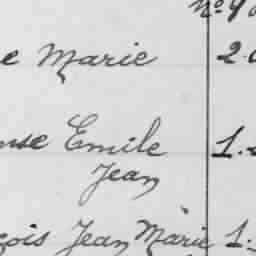 No 9
e Marie 2.
nse Emile 1.
Jean
çois Jean Marie 1.